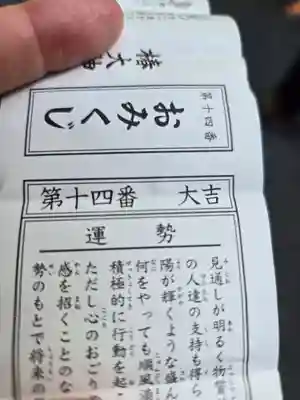 椿大神
第十四番
おみくじ
第十四番 大吉
運勢
見通しが明るく物質
の人達の支持も得ら
陽が輝くような盛ん
何をやっても順風満
積極的に行動を起こ
ただし心のおごりの
感を招くことのな
勢のもとで将来の